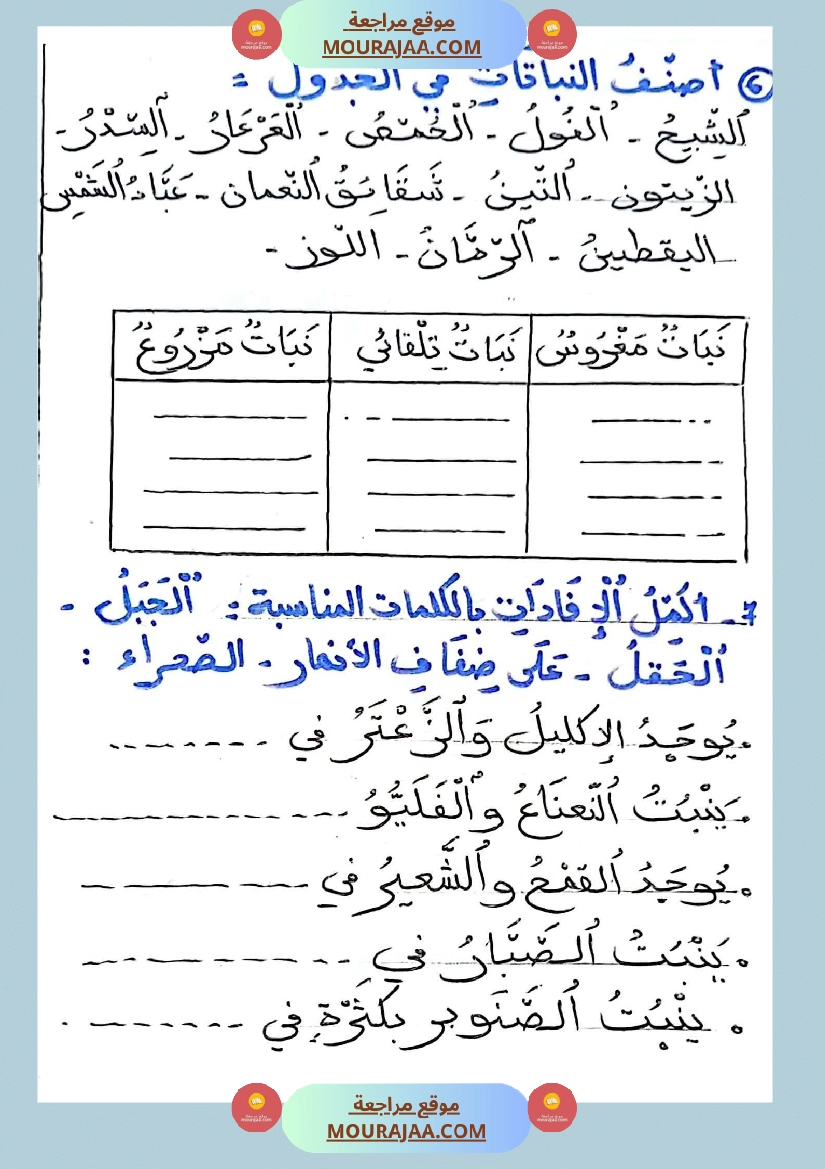 موقع مراجعة
MOURAJAA.COM
6 أصنّفُ النباتاتِ في الجدول :
اَلشِّيحُ - اَلْفُولُ - اَلْحُمّصُ - اَلْعَرْعَارُ - اَلسِّدْرُ -
الزّيتون - اَلتّينُ - شَقَائِقُ اُلنّعمان - عَبَّادُ اُلشَّمْسِ
اليقطينُ - اَلرّمَّانُ - اللّوز -
نَبَاتٌ مَغْرُوسٌ نَبَاتٌ تِلْقائي نَبَاتٌ مَزْرُوعٌ
7 - أكَمّلُ اُلْإِفَادَاتِ بالكلمات المناسبة : اَلْجَبَلُ -
اَلْحَقلُ - عَلَى ضِفَافِ الأنهار - الصّحراء :
. يُوجَدُ الإِكليلُ وَاَلزَّعْتَرُ في --------
. يَنْبُتُ اُلنّعنَاعُ واَلْفَلَيُّو --------------
. يُوجَدُ اُلقَمْحُ واُلشَّعيرُ في --------
. يَنْبُتُ اُلصَّبَّارُ في ----------
. ينْبُتُ اُلصَّنَوبر بكَثْرَةٍ في -------- .
موقع مراجعة
MOURAJAA.COM